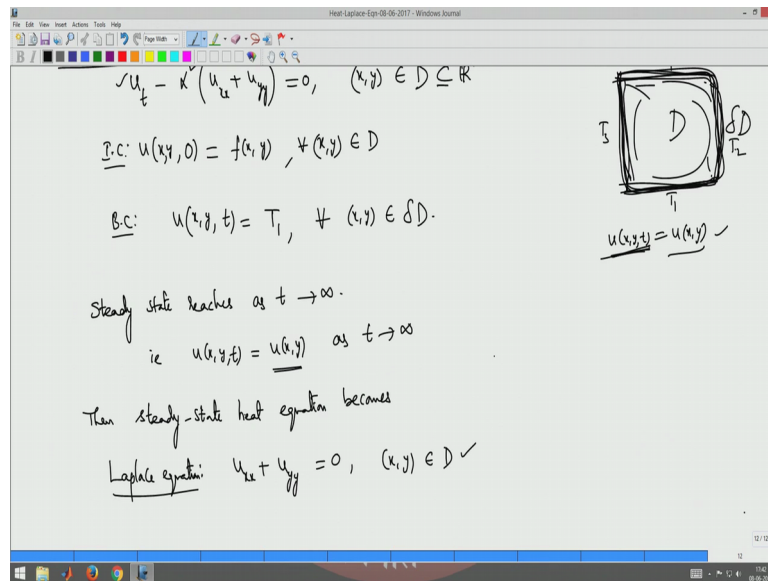 Heat-Laplace-Eqn-08-06-2017 - Windows Journal
File Edit View Insert Actions Tools Help
Page Width
B I
u_t - α² (u_xx + u_yy) = 0, (x,y) ∈ D ⊆ ℝ
I.C: u(x,y,0) = f(x,y), ∀ (x,y) ∈ D
B.C: u(x,y,t) = T₁, ∀ (x,y) ∈ δD.
Steady state reaches as t → ∞.
ie u(x,y,t) = u(x,y) as t → ∞
Then steady-state heat equation becomes
Laplace equation: u_xx + u_yy = 0, (x,y) ∈ D ✓
D
δD
T₃
T₂
T₁
u(x,y,t) = u(x,y) ✓
12 / 12
12
17:42
08-06-20